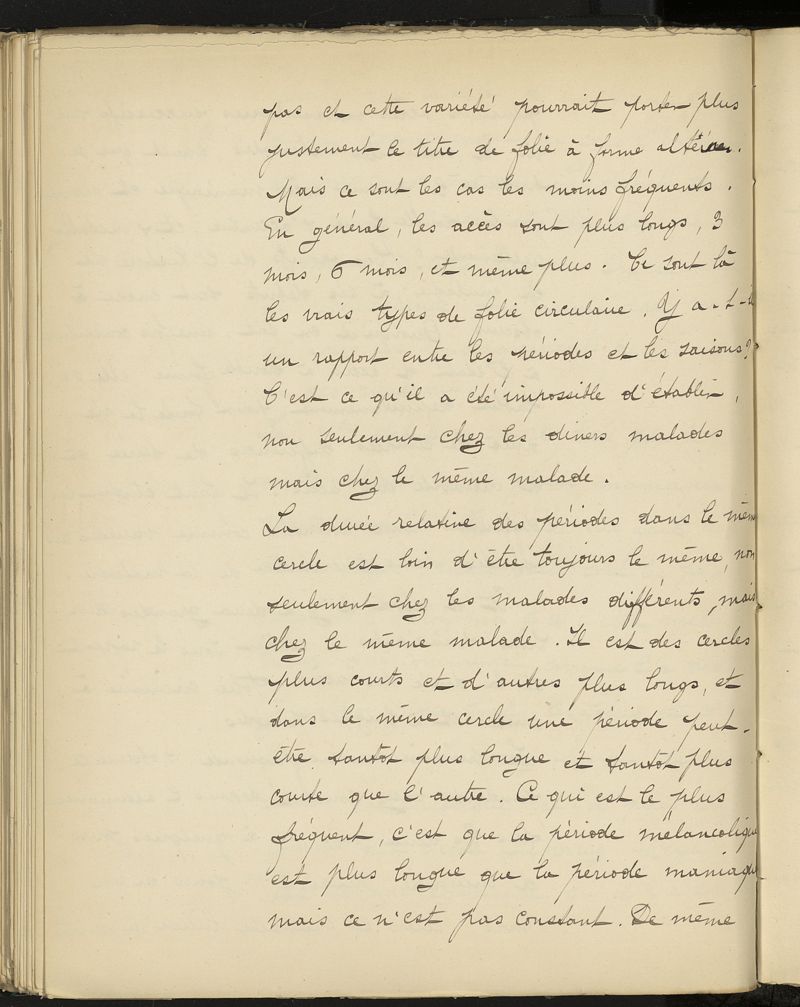 pas et cette variété pourrait porter plus
justement le titre de folie à forme altérne.
Mais ce sont les cas les moins fréquents.
En général, les accès sont plus longs, 3
mois, 6 mois, et même plus. Ce sont là
les vrais types de folie circulaire. Y a-t-il
un rapport entre les périodes et les saisons?
C'est ce qu'il a été impossible d'établir,
non seulement chez les divers malades
mais chez le même malade.
La durée relative des périodes dans le même
cercle est loin d'être toujours le même, non
seulement chez les malades différents, mais
chez le même malade. Il est des cercles
plus courts et d'autres plus longs, et
dans le même cercle une période peut-
être tantôt plus longue et tantôt plus
courte que l'autre. Ce qui est le plus
fréquent, c'est que la période mélancolique
est plus longue que la période maniaque
mais ce n'est pas constant. De même